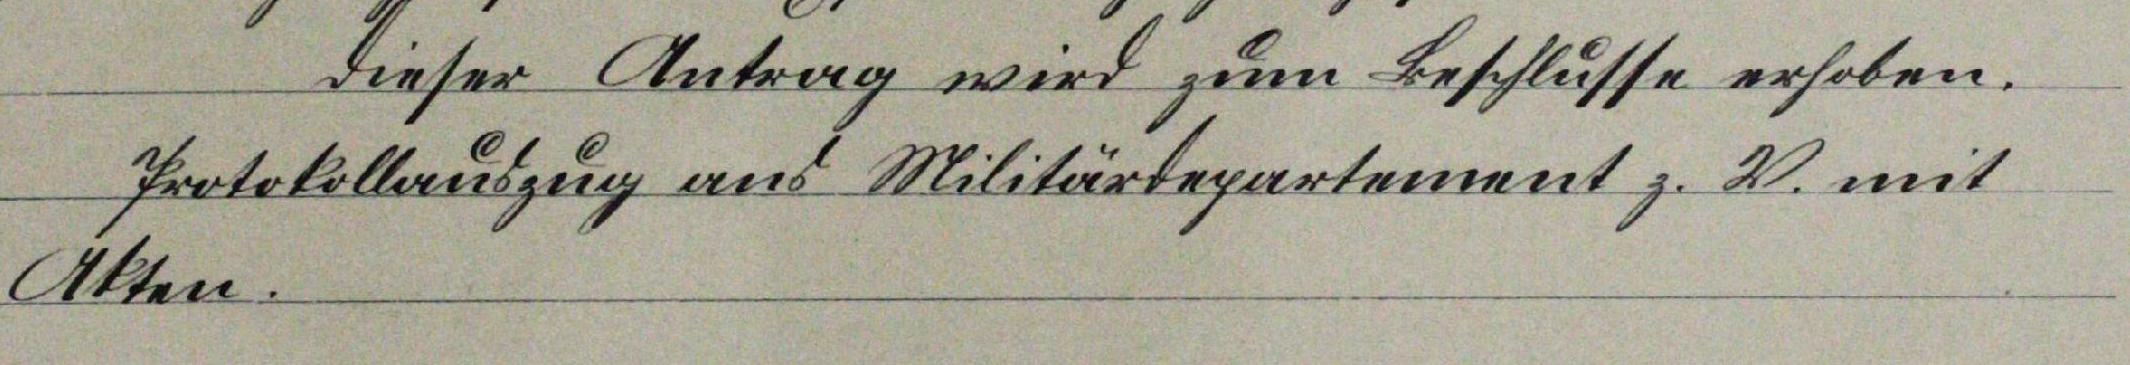 Dieser Antrag wird zum Beschlusse erhoben.
Protokollauszug ans Militärdepartement z. V. mit
Akten.